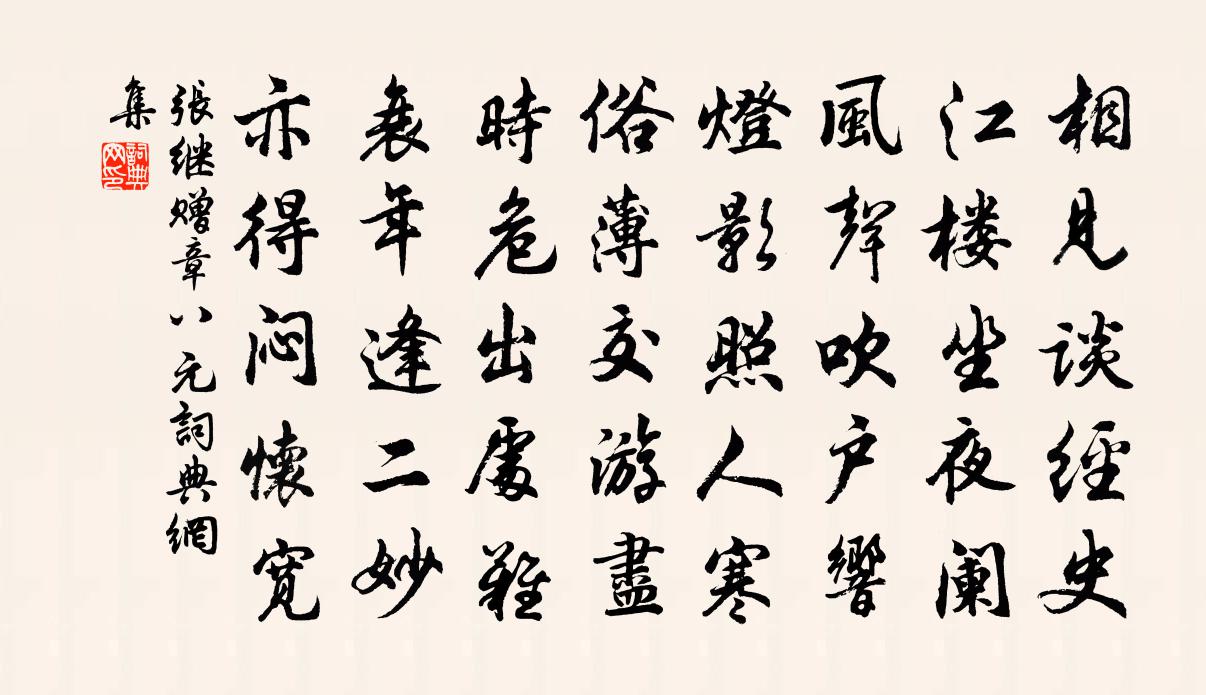 相見談經史
江楼坐夜阑
風聲吹户響
燈影照人寒
俗薄交游盡
時危出處難
衰年逢二妙
亦得闷懷寬
張继赠章八元詞典網
集
詞典网印